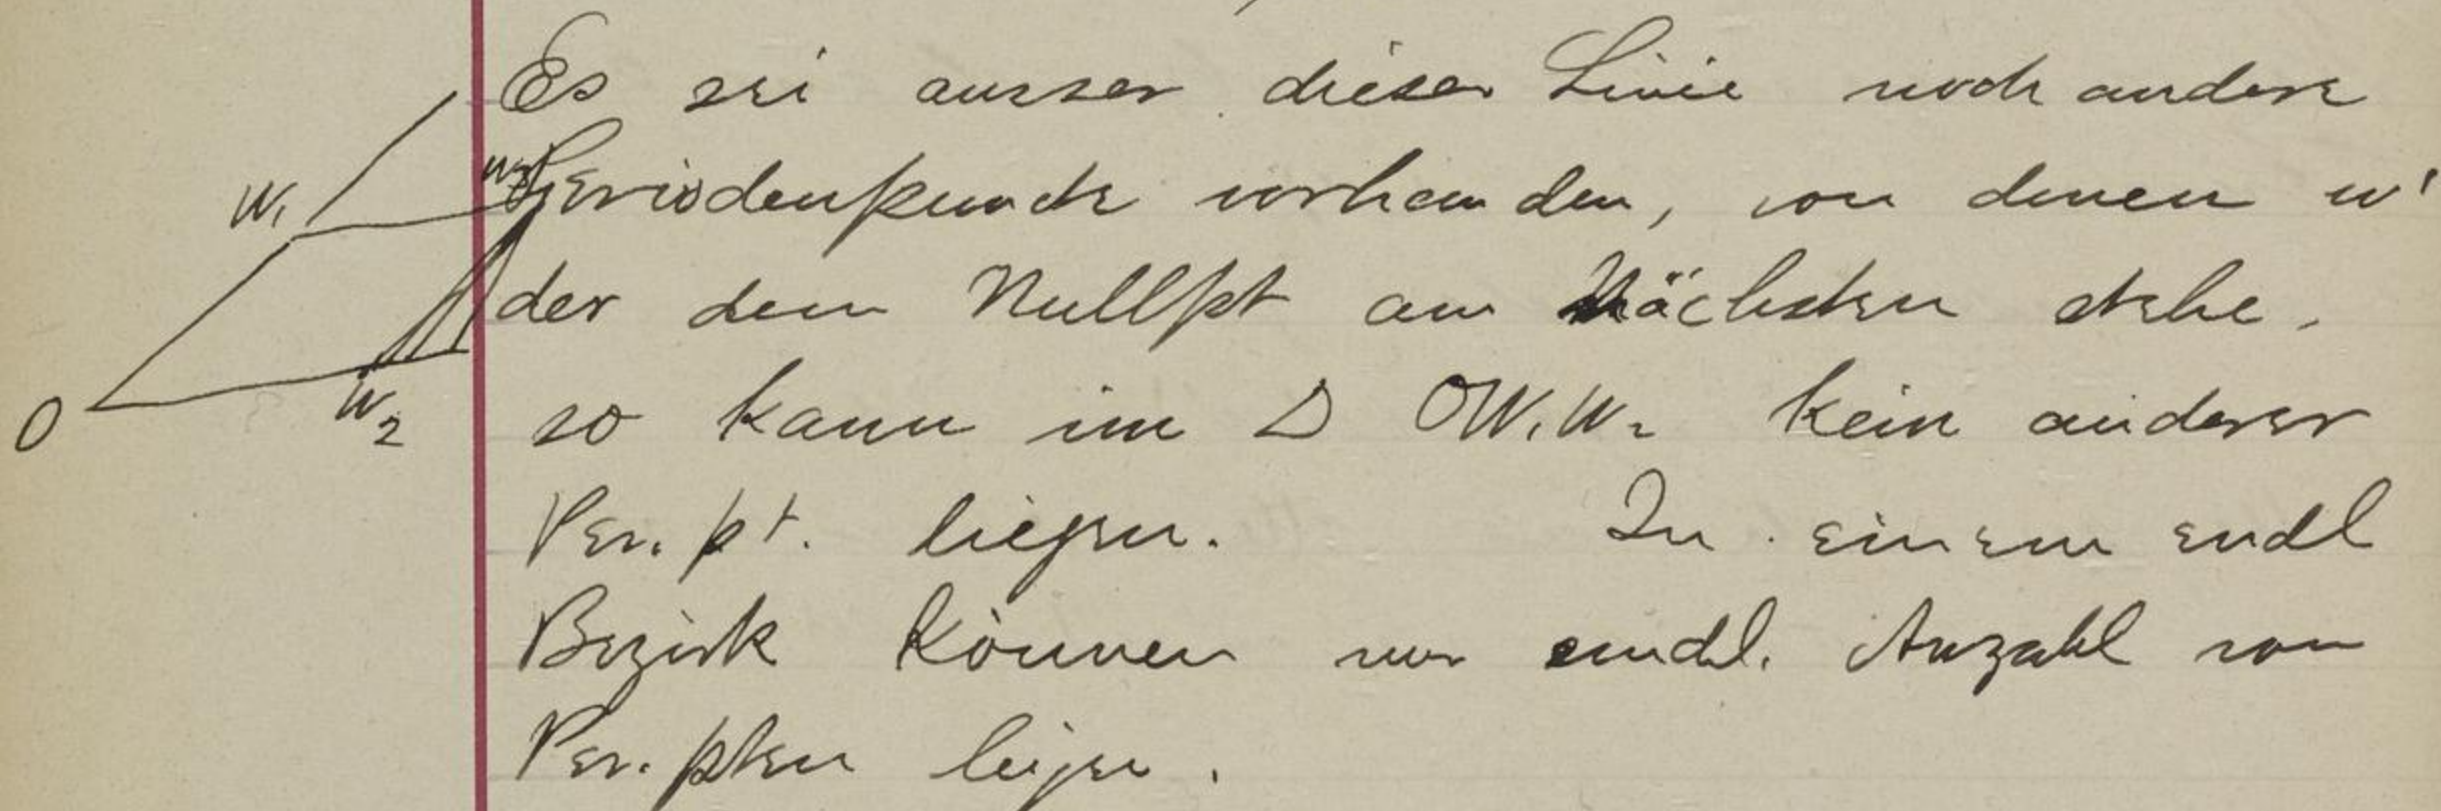 Es sei ausser dieser Linie noch andere
Periodenpunkte vorhanden, von denen w'
der dem Nullpt am Nächsten stehe,
so kann im Δ OW₁W₂ kein anderer
Per. pt. liegen. In einem endl
Bezirk können nur endl. Anzahl von
Per. pten liegen.
W₁
W₂
O